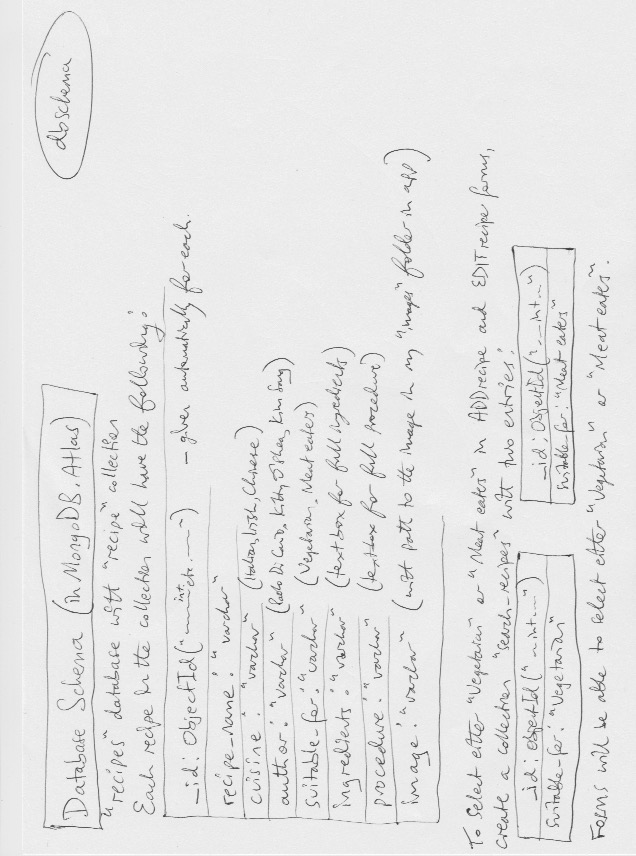 dbschema
Database Schema (in MongoDB.Atlas)
"recipes" database with "recipe" collection
Each recipe in the collection will have the following:
_id: ObjectId("int etc.") - given automatically for each.
recipe-name: "varchar"
cuisine: "varchar" (Italian, Irish, Chinese)
author: "varchar" (Paolo Di Canio, Kitty O'Shea, Kim Song)
suitable-for: "varchar" (Vegetarian, Meat eaters)
ingredients: "varchar" (text box for full ingredients)
procedure: "varchar" (textbox for full procedure)
image: "varchar" (with path to the image in my "images" folder in app)
To select either "Vegetarian" or "Meat eaters" in ADD recipe and EDIT recipe forms,
create a collection "search-recipes" with two entries:
_id: ObjectId("--int--")
suitable-for: "Vegetarian"
_id: ObjectId("--int--")
suitable-for: "Meat eaters"
Forms will be able to select either "Vegetarian" or "Meat eaters".